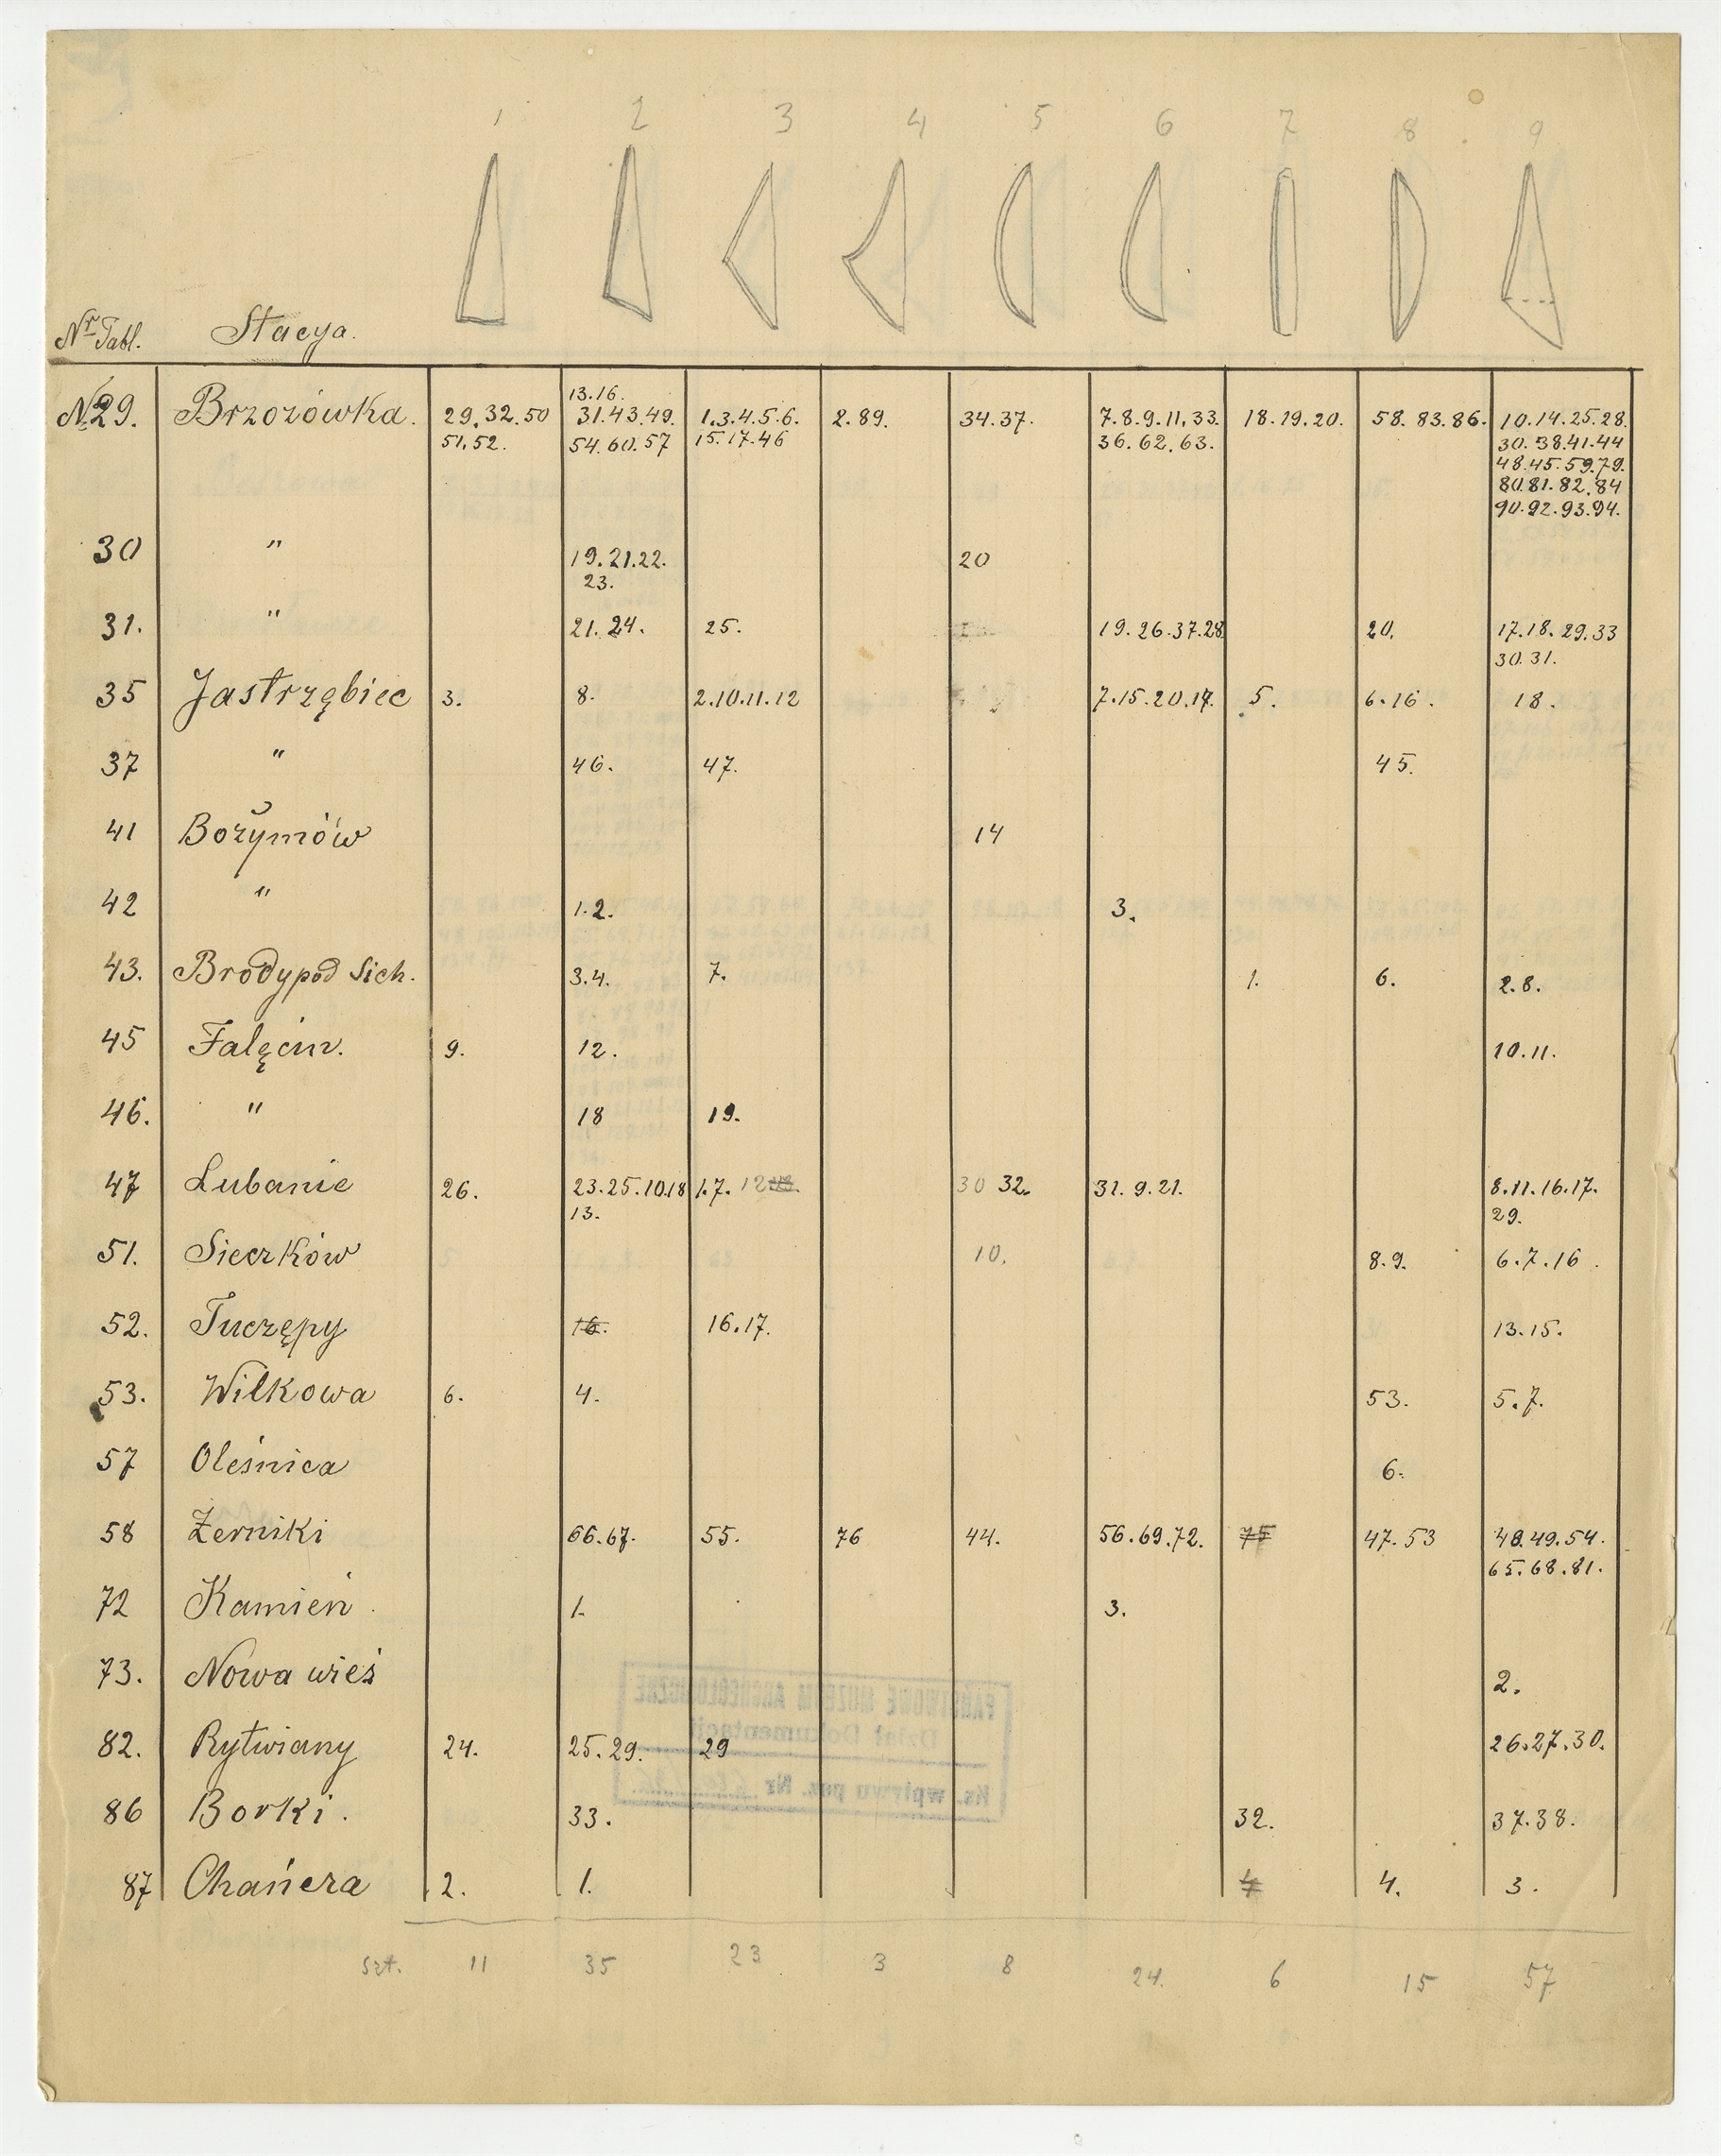 1 2 3 4 5 6 7 8 9
Nr Tabl. Stacya.
13.16.
№29. Brzozówka. 29.32.50 31.43.49. 1.3.4.5.6. 2.89. 34.37. 7.8.9.11.33. 18.19.20. 58.83.86. 10.14.25.28.
51.52. 54.60.57 15.17.46 36.62.63. 30.38.41.44
48.45.59.79.
80.81.82.84
90.92.93.94.
30 " 19.21.22. 20
23.
31. " 21.24. 25. 19.26.37.28 20. 17.18.29.33
30.31.
35 Jastrzębiec 3. 8. 2.10.11.12 7.15.20.17. 5. 6.16. 18.
37 " 46. 47. 45.
41 Bożymów 14
42 " 1.2. 3.
43. Brody pod Sich. 3.4. 7. 1. 6. 2.8.
45 Falęcin. 9. 12. 10.11.
46. " 18 19.
47 Lubanie 26. 23.25.10.18 1.7. 12 30 32. 31.9.21. 8.11.16.17.
13. 29.
51. Sieczków 10. 8.9. 6.7.16.
52. Tuczępy 16. 16.17. 13.15.
53. Wilkowa 6. 4. 53. 5.7.
57 Oleśnica 6.
58 Żerniki 66.67. 55. 76 44. 56.69.72. 75 47.53 48.49.54.
65.68.81.
72 Kamień 1. 3.
73. Nowa wieś 2.
PAŃSTWOWE MUZEUM ARCHEOLOGICZNE
Dział Dokumentacji
82. Rytwiany 24. 25.29. 29 26.27.30.
Ks. wpływu poz. Nr
86 Borki. 33. 32. 37.38.
87 Chańcza 2. 1. 4 4. 3.
szt. 11 35 23 3 8 24. 6 15 57